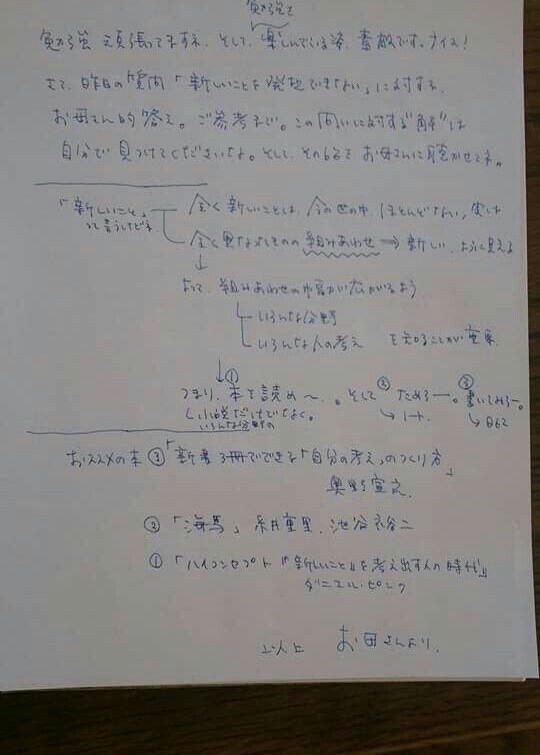 勉強を
勉強頑張てますネ。そして、楽しんでいる姿、素敵です。ナイス!
さて、昨日の質問「新しいことを発想できない」に対する、
お母さん的答え。ご参考まで。この問いに対する"解"は
自分で見つけてくださいな。そして、その解をお母さんに聴かせてネ。
「新しいこと」 全く新しいことは、今の世の中、ほとんどない、実は
って言うけどネ 全く異なるものの組みあわせ ⇒ 新しい、ように見える
↓
よって、組みあわせの幅が広がるよう
いろんな分野
いろんな人の考え を知ることが重要
↓①
つまり、本を読め〜。そして②ためろー。③書いてみろー。
小説だけでなく。いろんな分野の →ノート。 →ログ
おススメの本 ③「新書3冊でできる「自分の考え」のつくり方」
奥野宣之
②「海馬」糸井重里、池谷裕二
①「ハイコンセプト『新しいこと』を考え出す人の時代」
ダニエル・ピンク
以上 お母さんより。